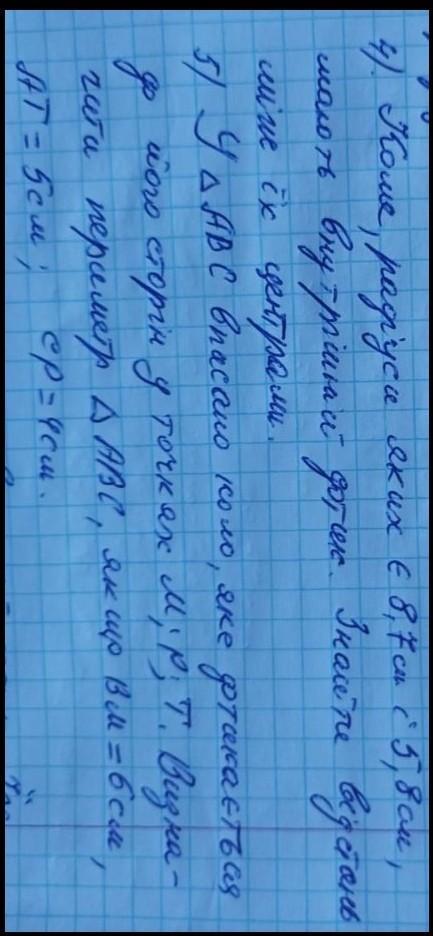 4) Кола, радіуси яких є 8,7см і 5,8см,
мають внутрішній дотик. Знайти відстань
між їх центрами.
5) У △ABC вписано коло, яке дотикається
до його сторін у точках M; P; T. Визна-
чити периметр △ABC, якщо BM = 6см,
AT = 5см; CP = 4см.